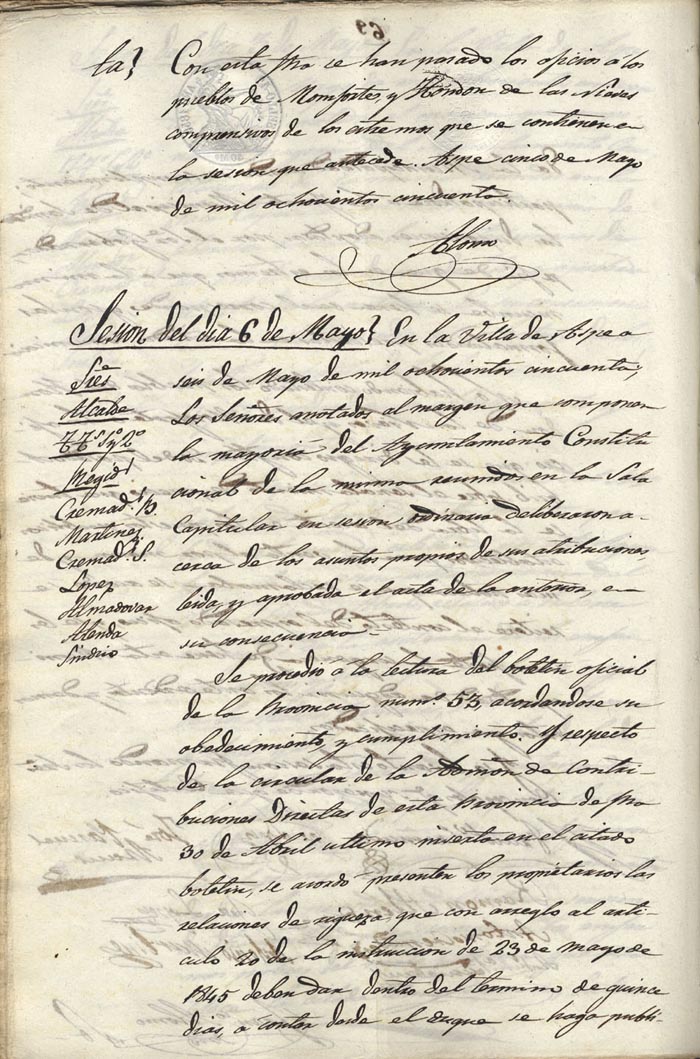 ta}
Con esta fha se han pasado los oficios á los
pueblos de Monforte, y Hondon de las Nieves
comprensivos de los estremos que se contienen en
la sesion que antecede. Aspe cinco de Mayo
de mil ochocientos cincuenta.
Alonso
Sesion del dia 6 de Mayo} En la Villa de Aspe a
seis de Mayo de mil ochocientos cincuenta;
Los Señores anotados al margen que componen
la mayoria del Ayuntamiento Constitu
cional de la misma reunidos en la Sala
Capitular en sesion ordinaria deliberaron a-
cerca de los asuntos propios de sus atribuciones,
leida, y aprobada el acta de la anterior, en
su consecuencia.
Sres
Alcalde
TTs 1º y 2º
Regid.s
Cremad.s B.
Martinez
Cremad.s S.
Lopez
Almodovar
Alenda
Sindico
Se procedió á la lectura del boletin oficial
de la Provincia num.º 53, acordandose su
obedecimiento y cumplimiento. Y respecto
de la circular de la Admón de Contri-
buciones Directas de esta Provincia de fha
30 de Abril ultimo inserta en el citado
boletin, se acordó presenten los propietarios las
relaciones de riqueza que con arreglo al arti-
culo 20 de la instruccion de 23 de Mayo de
1845 deben dar dentro del termino de quince
dias, á contar desde el en que se haga publi-